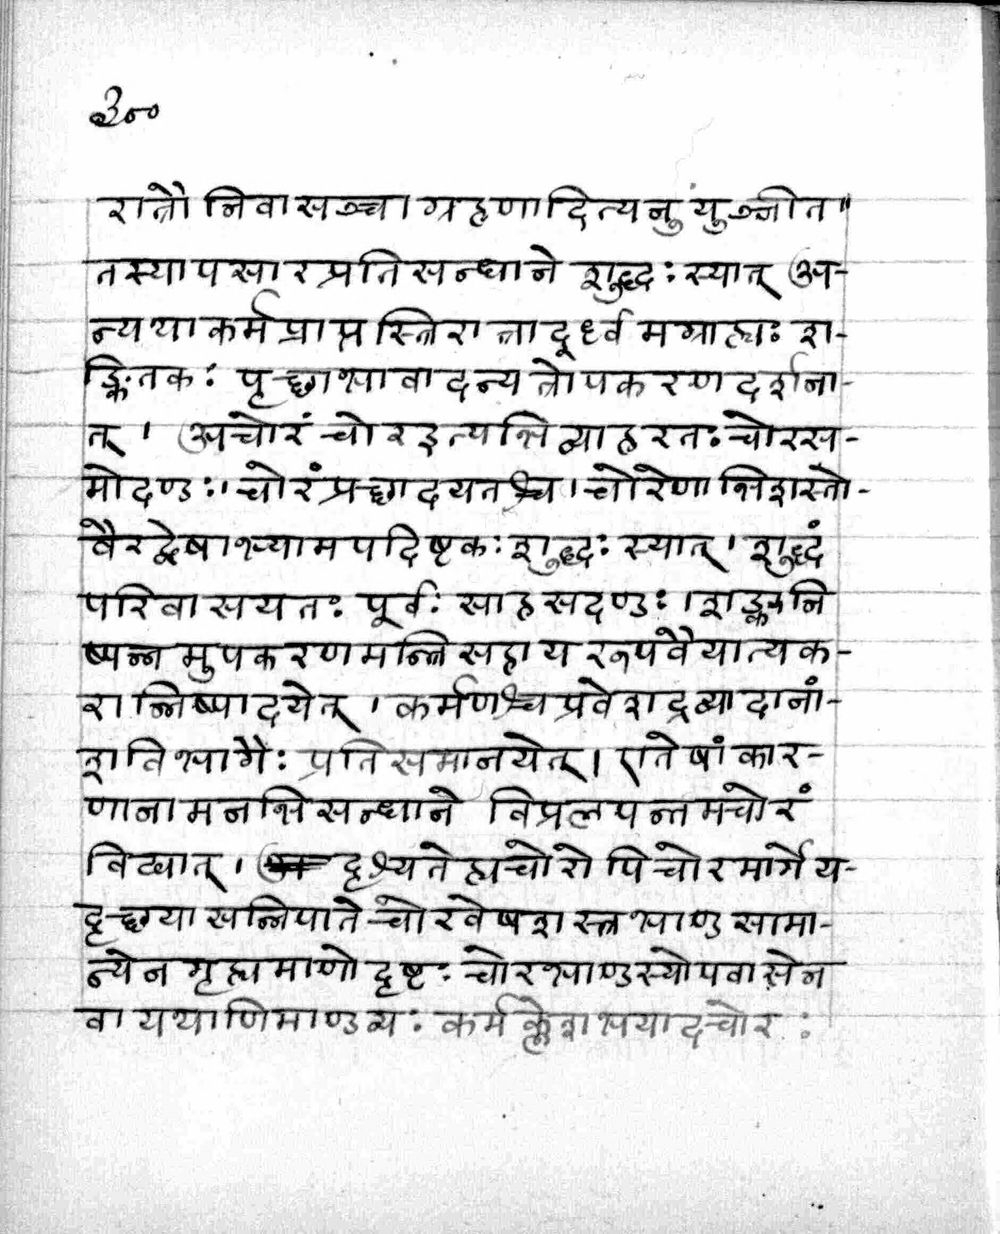 ३००
रात्रौ निवासञ्चा ग्रहणादित्यनुंयुञ्जीत"
तस्यापसारप्रतिसन्धाने शुद्धः स्यात् अ-
न्यथाकर्मप्राप्तस्त्रिरात्रादूर्ध्वमग्राह्यः श-
ङ्कितकः पृच्छाभावादन्यत्रोपकरणदर्शना-
त् । अचोरं चोरइत्यभिव्याहरतः चोरस-
मोदण्डः। चोरंप्रच्छादयतश्च । चोरेणाभिशस्तो-
वैरद्वेषाभ्यामपदिष्टकः शुद्धः स्यात् । शुद्धं
परिवासयतः पूर्वः साहसदण्डः । शङ्कानि
ष्पन्नमुपकरणमन्त्रिसहायरूपवैयात्यक-
रान्निष्पादयेत् । कर्मणश्चप्रवेशद्रव्यादानां-
शविभागैः प्रतिसमानयेत् । एतेषां कार-
णानामनभिसन्धाने विप्रलपन्तमचोरं
विद्यात् । दृश्यतेह्यचोरोपिचोरमार्गेय-
दृच्छयासन्निपातेचोरवेषशस्त्रभाण्डसामा-
न्येनगृह्यमाणोदृष्टः चोरभाण्डस्योपवासेन
वायथाणिमाण्डव्यः कर्मक्लेशभयादचोरः